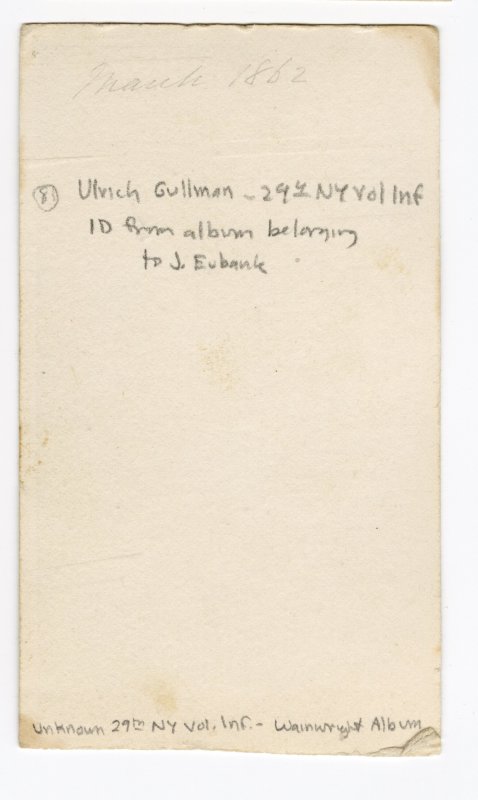 March 1862
8 Ulrich Gullman - 29th NY Vol Inf
ID from album belonging
to J. Eubank
Unknown 29th NY Vol. Inf. - Wainwright Album